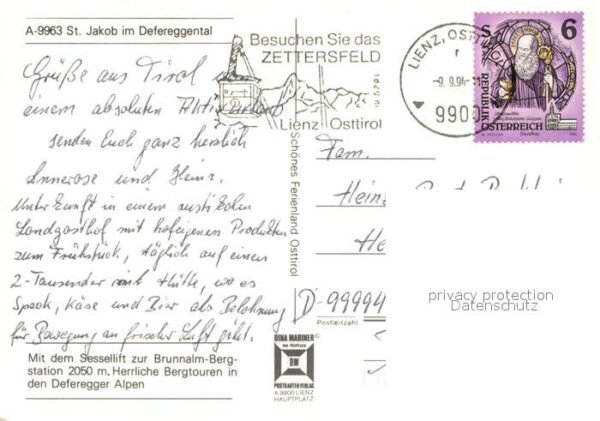 A-9963 St. Jakob im Defereggental
Grüße aus Tirol von
einem absoluten Aktivurlaub
senden Euch ganz herzlich
Annerose und Heinz.
Unterkunft in einem rustikalen
Landgasthof mit hofeigenen Produkten
zum Frühstück, täglich auf einen
2-Tausender mit Hütte, wo es
Speck, Käse und Bier als Belohnung
für Bewegung an frischer Luft gibt.
Mit dem Sessellift zur Brunnalm-Berg-
station 2050 m. Herrliche Bergtouren in
den Deferegger Alpen
Besuchen Sie das
ZETTERSFELD
1820 m
Lienz Osttirol
LIENZ, OSTTIROL
r
-9.9.94-11
9900
S 6
REPUBLIK
ÖSTERREICH
Schönes Ferienland Osttirol
Fam.
Heinz
He
D-99994
Postleitzahl
privacy protection
Datenschutz
DINA MARINER
DM
POSTKARTENVERLAG
A 9900 LIENZ
HAUPTPLATZ